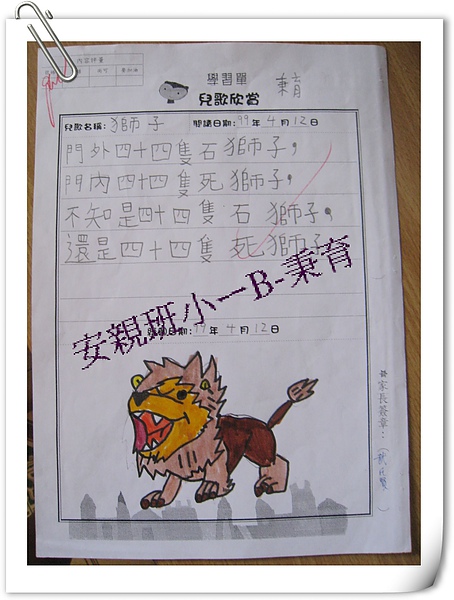 內容評量
學習單
兒歌欣賞
秉育
兒歌名稱:獅子 閱讀日期:99年4月12日
門外四十四隻石獅子,
門內四十四隻死獅子,
不知是四十四隻石獅子,
還是四十四隻死獅子
安親班小一B-秉育
日期:99年4月12日
家長簽章: